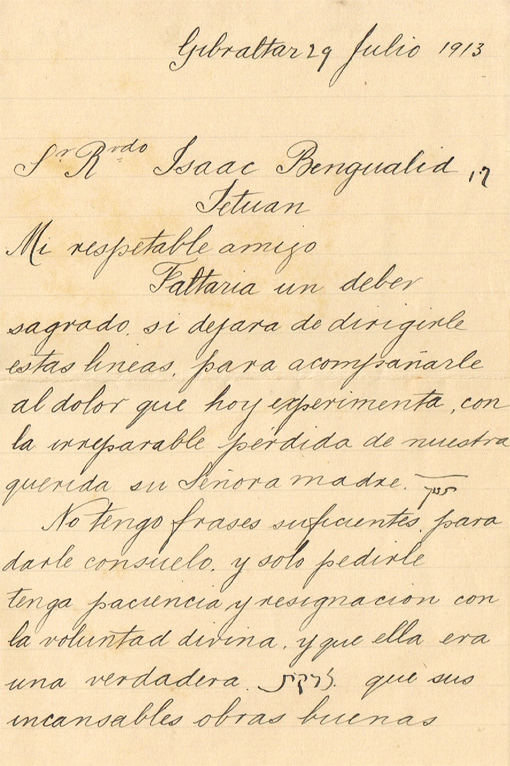 Gibraltar 29 Julio 1913
Sr Rvdo Isaac Bengualid
Tetuan
Mi respetable amigo
Faltaria un deber
sagrado. si dejara de dirigirle
estas lineas. para acompañarle
al dolor que hoy experimenta, con
la irreparable perdida de nuestra
querida su Señora madre.
No tengo frases suficientes. para
darle consuelo. y solo pedirle
tenga paciencia y resignacion con
la voluntad divina. y que ella era
una verdadera. צדקת. que sus
incansables obras buenas